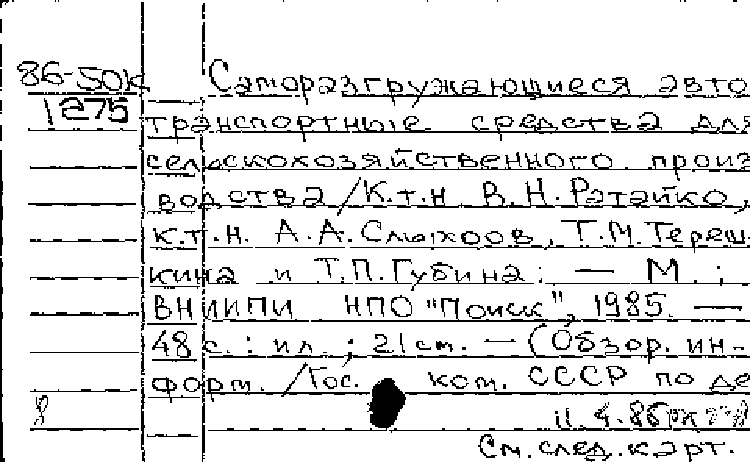 86-50к Саморазгружающиеся авто
1275 транспортные средства для
сельскохозяйственного произ
водства/К.т.н В.Н.Ратайко,
к.т.н. А.А. Т.М.Тереш
кина и Т.П.Губина: — М.;
ВНИИПИ НПО "Поиск", 1985. —
48 с.: ил.; 21 см. — (Обзор. ин-
форм. /Гос. ком. СССР по де
8 11.4.86
См. след. карт.